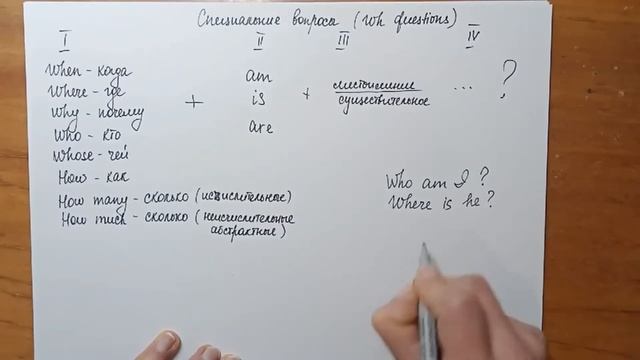 Специальные вопросы (Wh questions)
I II III IV
When - когда
Where - где
Why - почему
Who - кто
Whose - чей
How - как
How many - сколько (исчислительные)
How much - сколько (неисчислительные
абстрактные)
+
am
is
are
+
местоимение
существительное
... ?
Who am I ?
Where is he ?